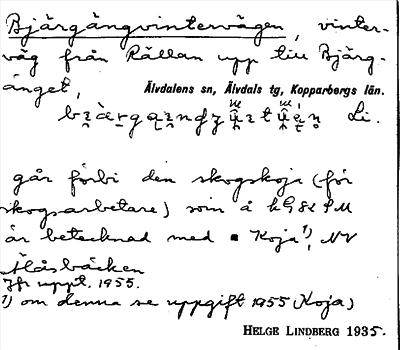 Bjärgångvintervägen, vinter-
väg från Rällan upp till Bjärg-
ånget,
Älvdalens sn, Älvdals tg, Kopparbergs län.
Li.
går förbi den skogskoja (för
skogsarbetare) som å
är betecknad med ▪ Koja¹⁾, NV
Håsbäcken
Jfr uppt. 1955.
¹⁾ om denna se uppgift 1955 (Koja)
HELGE LINDBERG 1935.